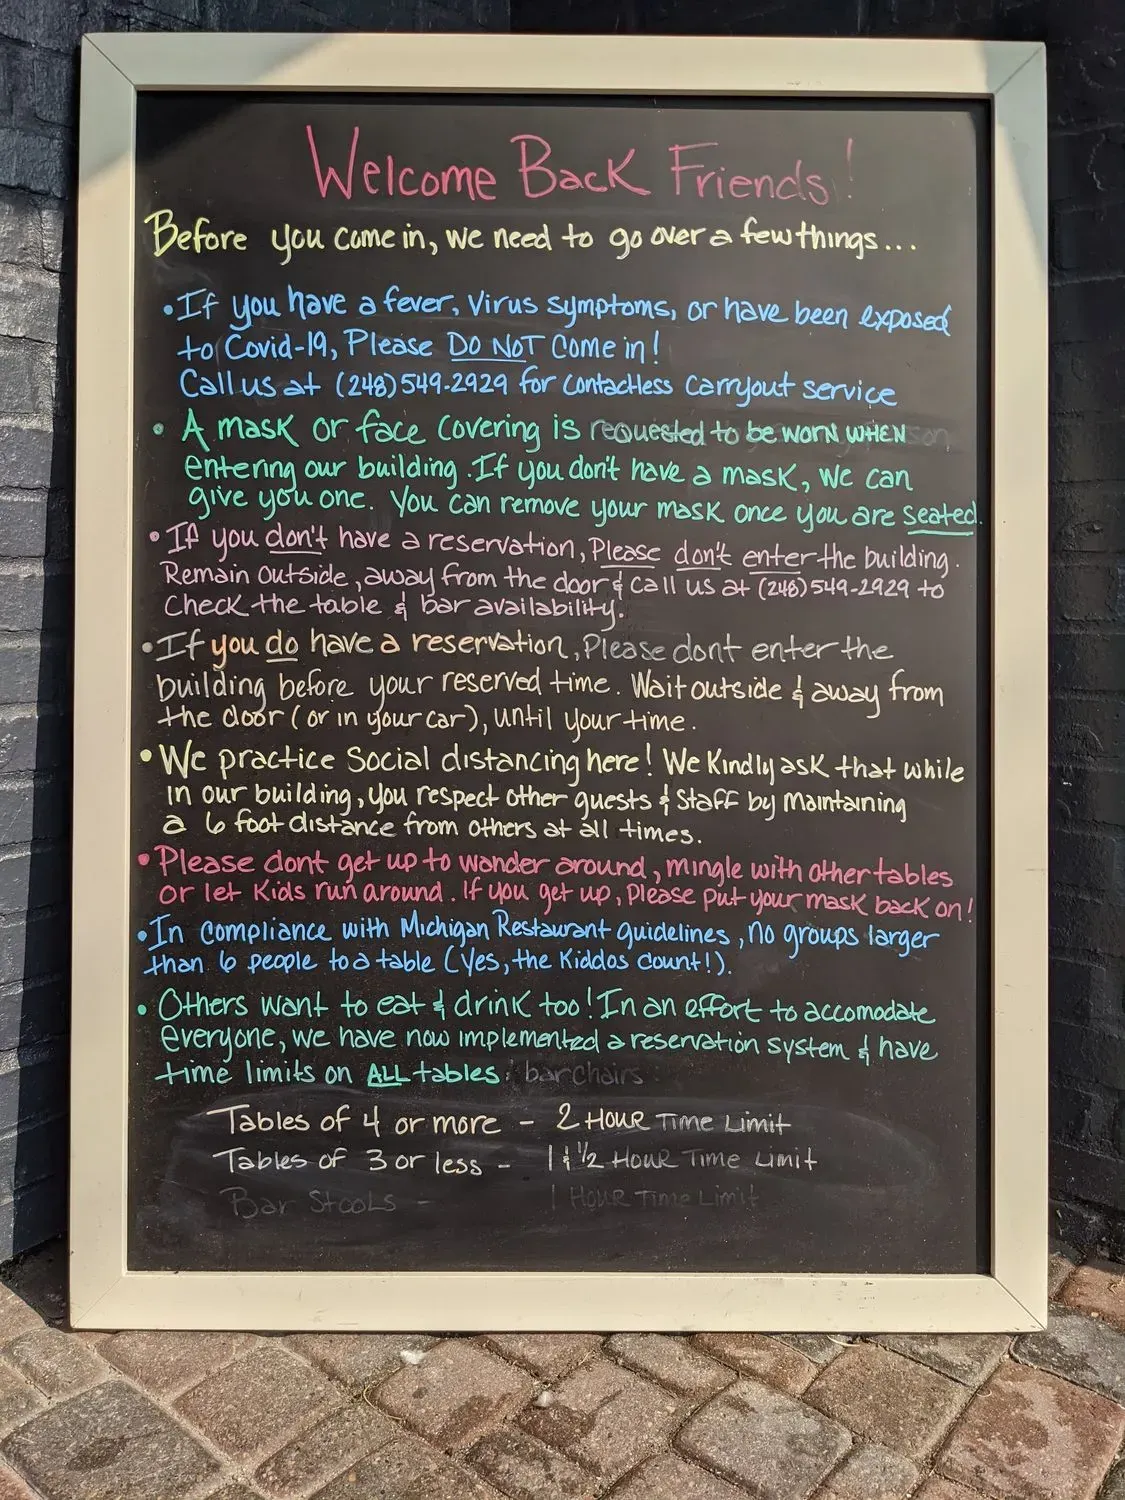 Welcome Back Friends!
Before you come in, we need to go over a few things...
• If you have a fever, Virus symptoms, or have been exposed
to Covid-19, Please DO NOT Come in!
Call us at (248) 549-2929 for contactless carryout service
• A mask or face covering is requested to be worn when
entering our building. If you don't have a mask, we can
give you one. You can remove your mask once you are seated.
• If you don't have a reservation, Please don't enter the building.
Remain outside, away from the door & call us at (248) 549-2929 to
check the table & bar availability.
• If you do have a reservation, Please dont enter the
building before your reserved time. Wait outside & away from
the door (or in your car), until your time.
• We practice Social distancing here! We Kindly ask that while
in our building, you respect other guests & Staff by Maintaining
a 6 foot distance from others at all times.
• Please dont get up to wander around, mingle with other tables
or let Kids run around. If you get up, Please put your mask back on!
• In compliance with Michigan Restaurant guidelines, no groups larger
than 6 people to a table (Yes, the Kiddos count!).
• Others want to eat & drink too! In an effort to accomodate
everyone, we have now implemented a reservation system & have
time limits on ALL tables & bar chairs.
Tables of 4 or more - 2 Hour Time Limit
Tables of 3 or less - 1 & 1/2 Hour Time Limit
Bar Stools - 1 Hour Time Limit